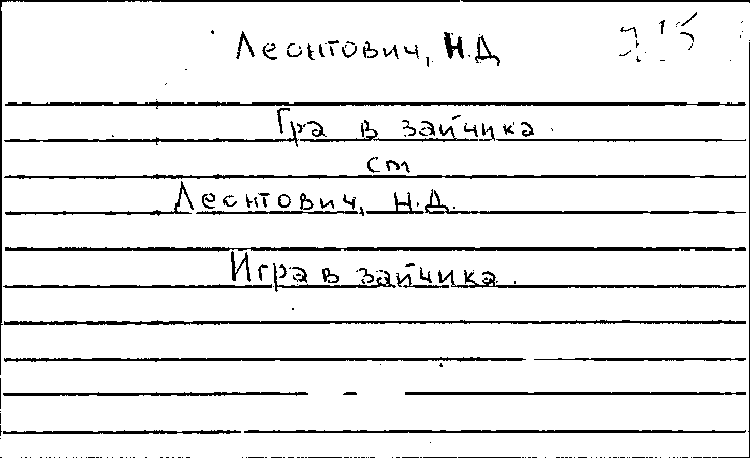 Леонтович, Н.Д
Гра в зайчика.
cm
Леонтович, Н.Д.
Игра в зайчика.